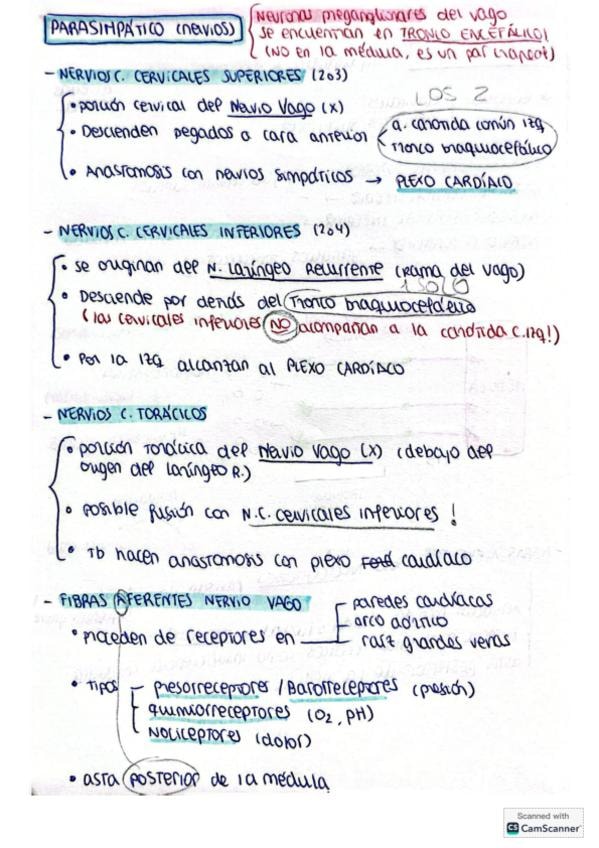 PARASIMPÁTICO (nervios)
Neuronas preganglionares del vago
se encuentran en TRONCO ENCEFÁLICO!
(NO en la médula, es un par craneal)
- NERVIOS C. CERVICALES SUPERIORES (2o3)
• porción cervical del Nervio Vago (X)
LOS 2
• Descienden pegados a cara anterior
a. carótida común izq
Tronco braquiocefálico
• Anastomosis con nervios simpáticos → PLEXO CARDÍACO
- NERVIOS C. CERVICALES INFERIORES (2o4)
• se originan del N. Laríngeo Recurrente (rama del vago)
1 SOLO
• Desciende por detrás del Tronco braquiocefálico
(los cervicales inferiores NO acompañan a la carótida C.izq!)
• Por la izq alcanzan al PLEXO CARDÍACO
- NERVIOS C. TORÁCICOS
• porción torácica del Nervio Vago (X) (debajo del
origen del laríngeo R.)
• posible fusión con N.C. cervicales inferiores !
• tb hacen anastomosis con plexo cardíaco
- FIBRAS AFERENTES NERVIO VAGO
paredes cardíacas
arco aórtico
raíz grandes venas
• proceden de receptores en
• Tipos
Presorreceptores / Barorreceptores (presión)
quimiorreceptores (O2, pH)
Nociceptores (dolor)
• asta POSTERIOR de la médula
Scanned with
CS CamScanner